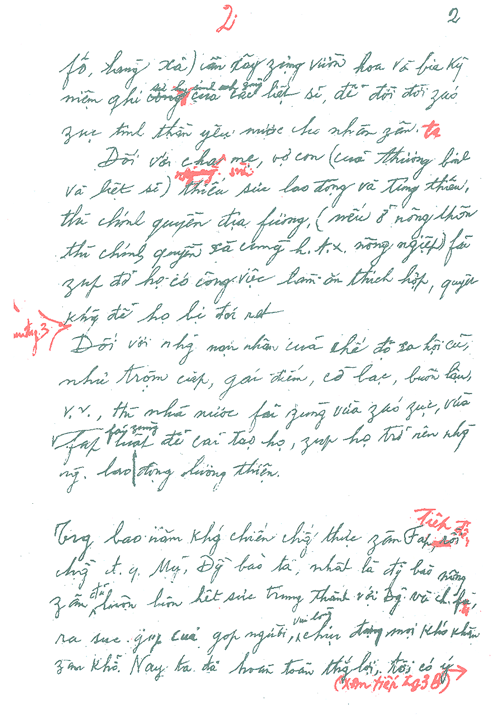 2;
2
fố, hang xã) cần xây zựng vườn hoa và bia kỷ
sự hy sinh anh zũng
niệm ghi công của các liệt sĩ, để đời đời záo
zục tinh thần yêu nước cho nhân zân. ta
Đối với cha mẹ, vợ con (của thương binh
mà
và liệt sĩ) thiếu sức lao động và túng thiếu,
thì chính quyền địa fương, (nếu ở nông thôn
thì chính quyền xã cùng h.t.x. nông nghiệp) fải
zúp đỡ họ có công việc làm ăn thích hợp, quyết
khg để họ bị đói rét
Đối với nhg nạn nhân của chế độ xã hội cũ,
như trộm cắp, gái điếm, cờ bạc, buôn lậu,
v.v., thì nhà nước fải zùng vừa záo zục, vừa
fải zùng
fáp luật để cải tạo họ, zúp họ trở nên nhg
ng. lao động lương thiện.
Tiếp đó,
Trg bao năm khg chiến chg thực zân Fáp, rồi
chg đ.q. Mỹ, Đg bào ta, nhất là đg bào nông
zân đã luôn luôn hết sức trung thành với Đg và ch. fủ,
vui lòng
ra sức góp của góp người, chịu đựng mọi khó khăn
zan khổ. Nay ta đã hoàn toàn thg lợi, tôi có ý
(xem tiếp tg 3B)